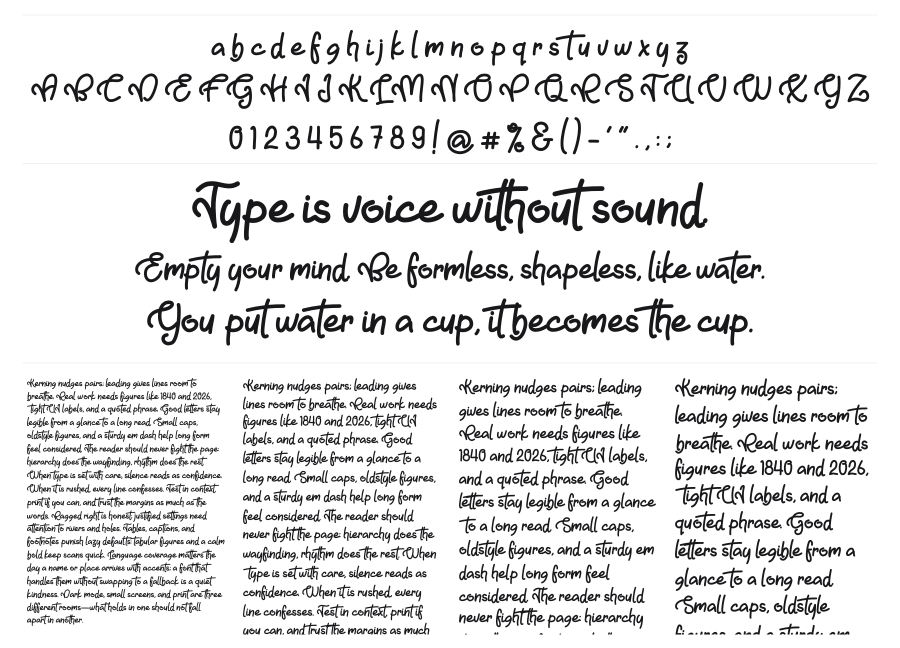 a b c d e f g h i j k l m n o p q r s t u v w x y z
A B C D E F G H I J K L M N O P Q R S T U V W X Y Z
0 1 2 3 4 5 6 7 8 9 ! @ # % & ( ) - ' " . , : ;
Type is voice without sound.
Empty your mind. Be formless, shapeless, like water.
You put water in a cup, it becomes the cup.
Kerning nudges pairs; leading gives lines room to
breathe. Real work needs figures like 1840 and 2026,
tight UI labels, and a quoted phrase. Good letters stay
legible from a glance to a long read. Small caps,
oldstyle figures, and a sturdy em dash help long form
feel considered. The reader should never fight the page:
hierarchy does the wayfinding, rhythm does the rest.
When type is set with care, silence reads as confidence.
When it is rushed, every line confesses. Test in context,
print if you can, and trust the margins as much as the
words. Ragged right is honest; justified settings need
attention to rivers and holes. Tables, captions, and
footnotes punish lazy defaults: tabular figures and a calm
bold keep scans quick. Language coverage matters the
day a name or place arrives with accents: a font that
handles them without swapping to a fallback is a quiet
kindness. Dark mode, small screens, and print are three
different rooms—what holds in one should not fall
apart in another.
Kerning nudges pairs; leading gives
lines room to breathe. Real work needs
figures like 1840 and 2026, tight UI
labels, and a quoted phrase. Good
letters stay legible from a glance to a
long read. Small caps, oldstyle figures,
and a sturdy em dash help long form
feel considered. The reader should
never fight the page: hierarchy does the
wayfinding, rhythm does the rest. When
type is set with care, silence reads as
confidence. When it is rushed, every
line confesses. Test in context, print if
you can, and trust the margins as much
Kerning nudges pairs; leading
gives lines room to breathe.
Real work needs figures like
1840 and 2026, tight UI labels,
and a quoted phrase. Good
letters stay legible from a glance
to a long read. Small caps,
oldstyle figures, and a sturdy em
dash help long form feel
considered. The reader should
never fight the page: hierarchy
Kerning nudges pairs;
leading gives lines room to
breathe. Real work needs
figures like 1840 and 2026,
tight UI labels, and a
quoted phrase. Good
letters stay legible from a
glance to a long read.
Small caps, oldstyle
figures, and a sturdy em